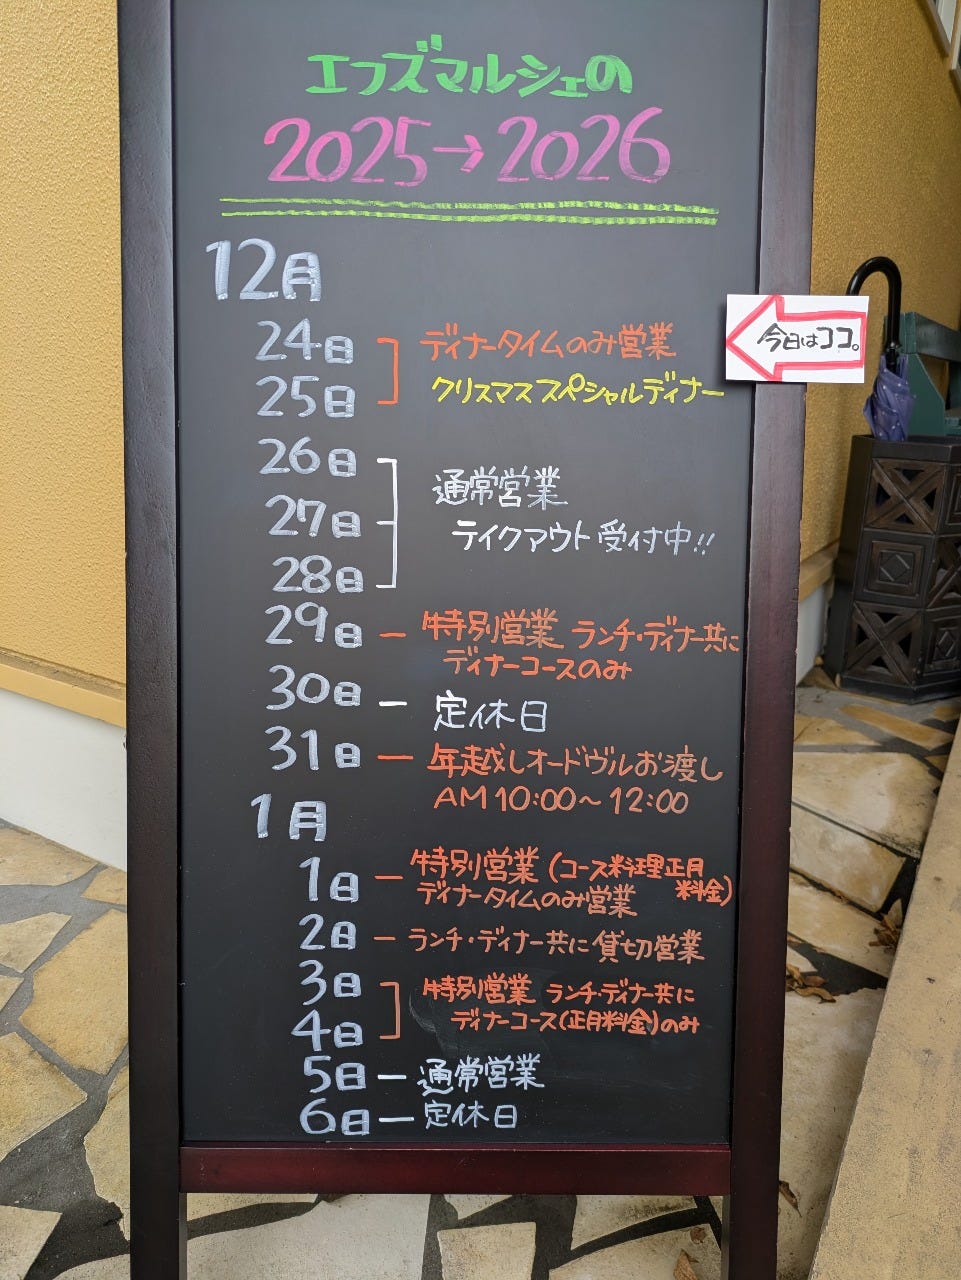 エフズマルシェの
2025→2026
12月
24日
ディナータイムのみ営業
今日はココ。
25日
クリスマススペシャルディナー
26日
27日
28日
通常営業
テイクアウト受付中!!
29日 ー 特別営業 ランチ・ディナー共に
ディナーコースのみ
30日 ー 定休日
31日 ー 年越しオードヴルお渡し
AM10:00〜12:00
1月
1日 ー 特別営業(コース料理正月料金)
ディナータイムのみ営業
2日 ー ランチ・ディナー共に貸切営業
3日
4日
特別営業 ランチ・ディナー共に
ディナーコース(正月料金)のみ
5日 ー 通常営業
6日 ー 定休日